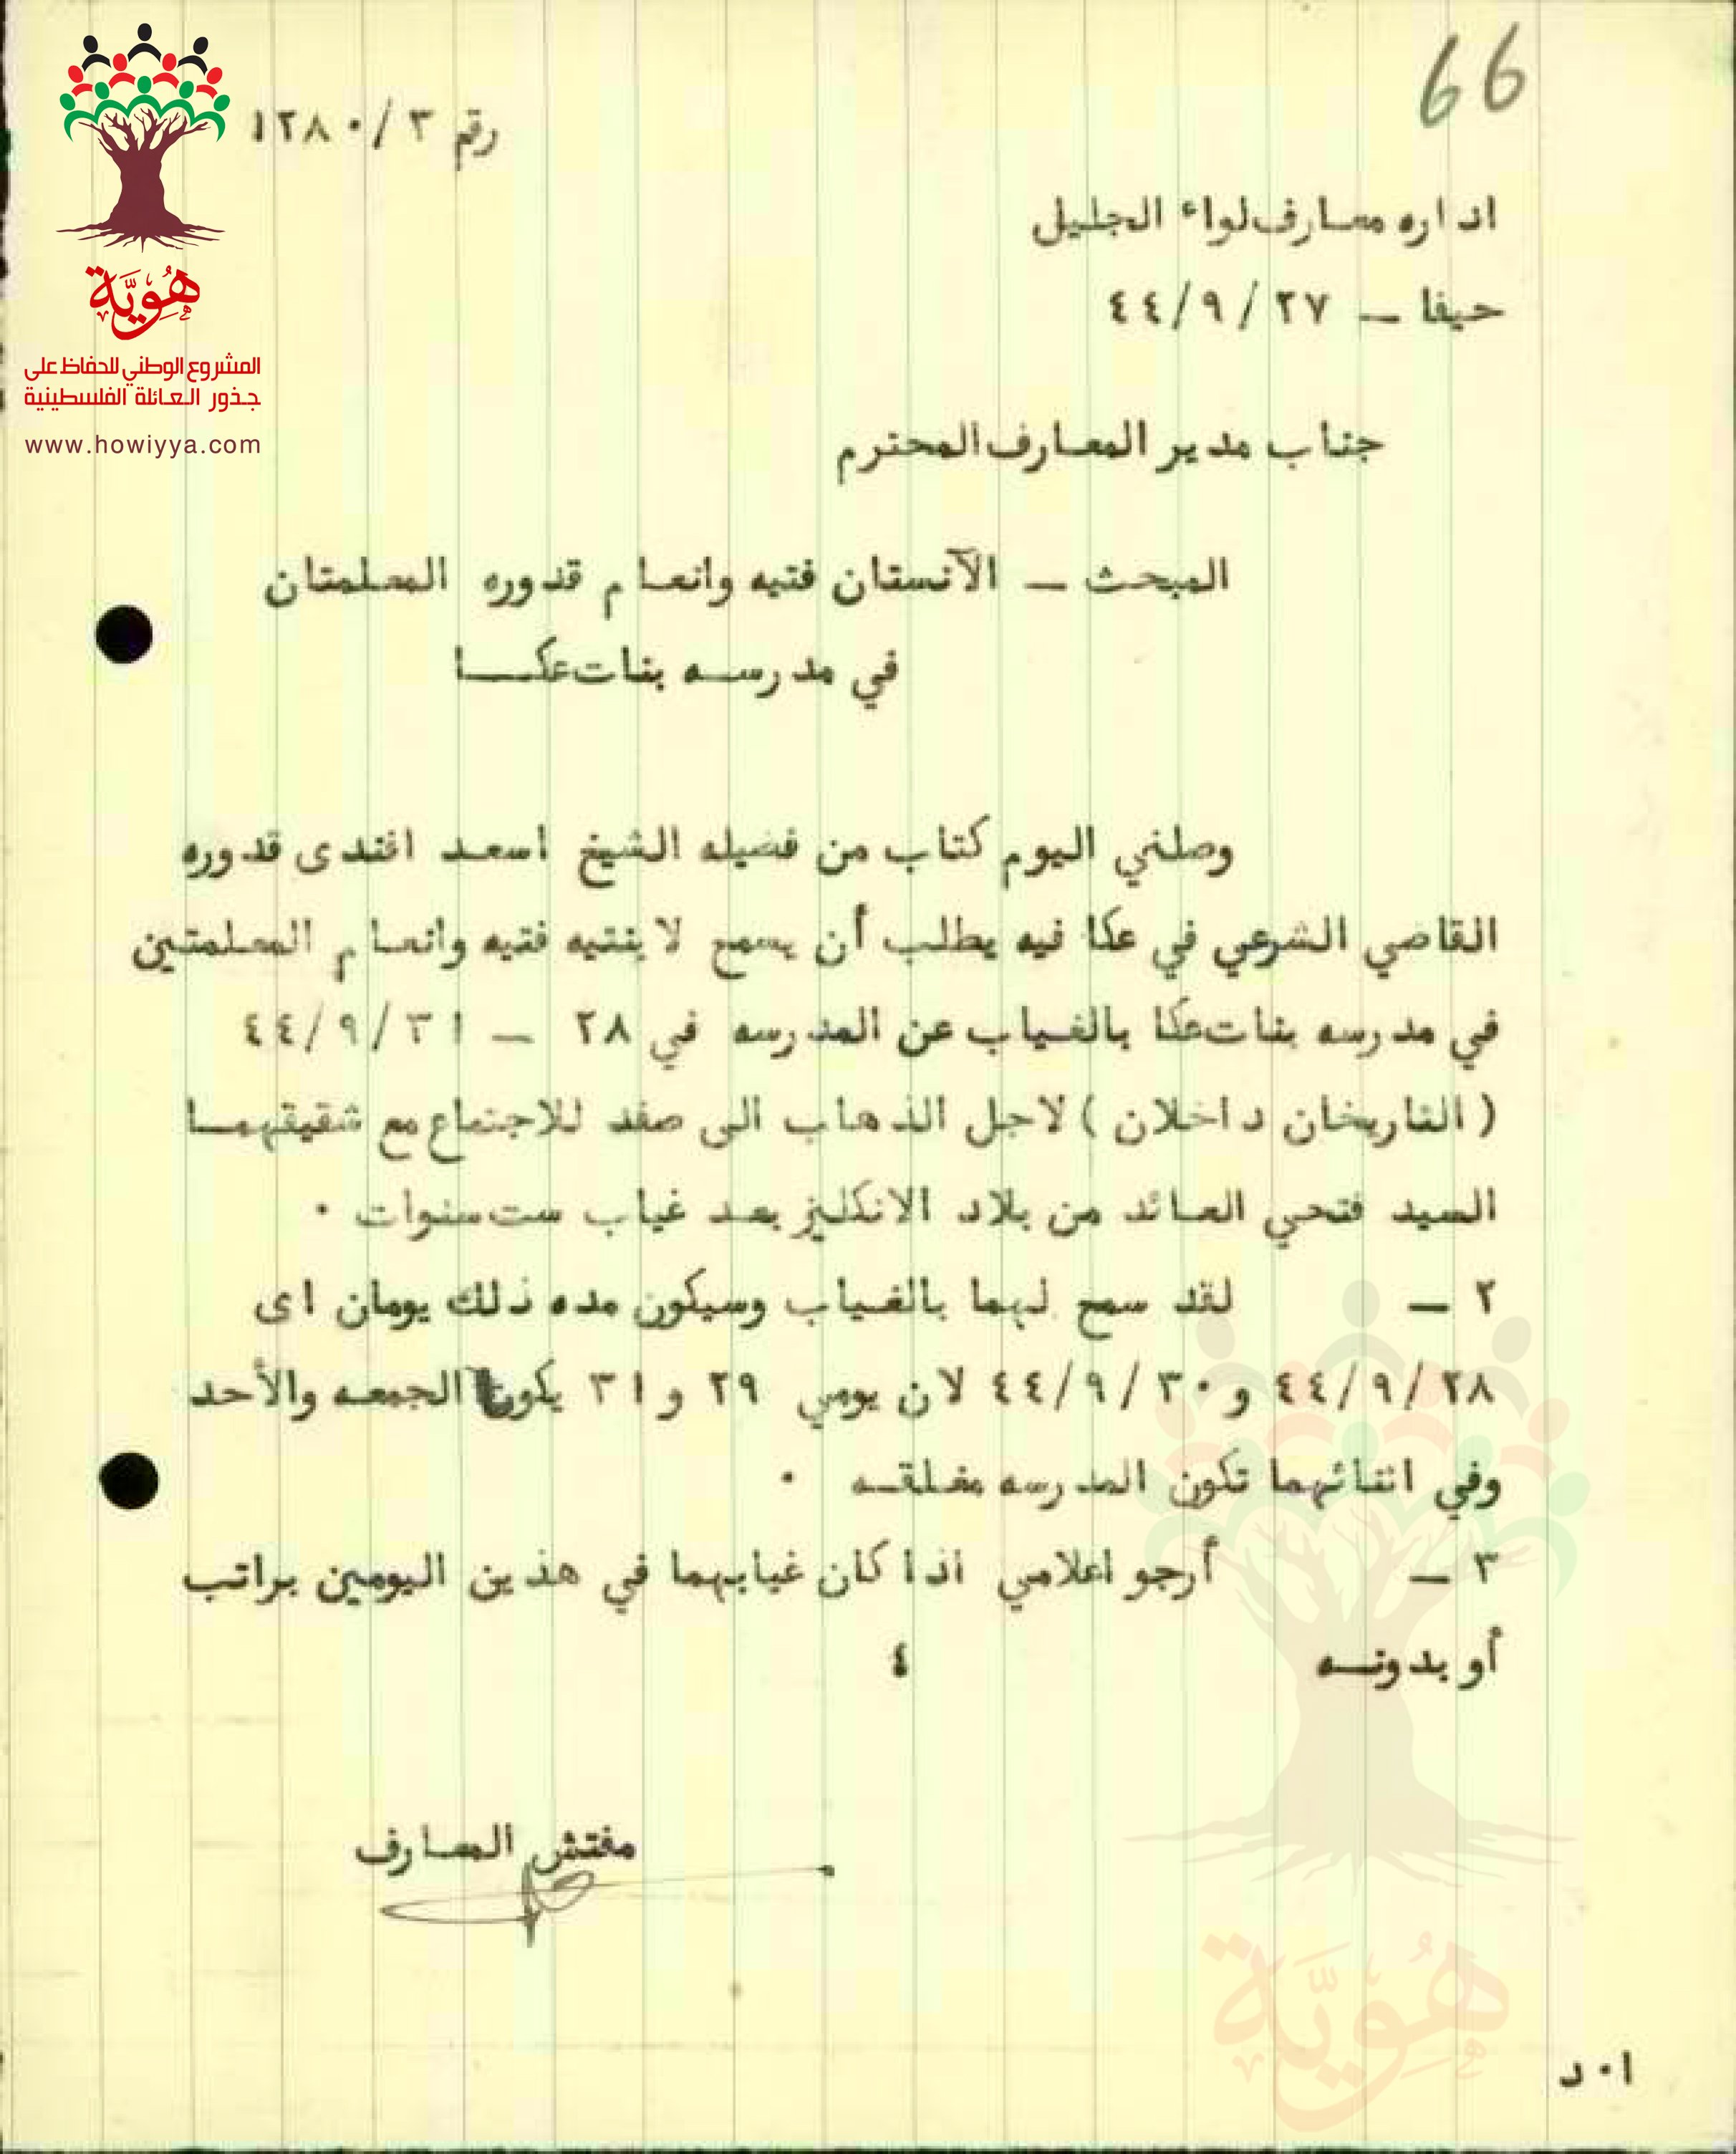 66
رقم ٣ /١٢٨٠
اداره معارف لواء الجليل
حيفا ــ ٢٧ /٩ /٤٤
جناب مدير المعارف المحترم
المبحث ــ الآنستان فتيه وانعام قدوره المعلمتان
في مدرسه بنات عكا
وصلني اليوم كتاب من فضيله الشيخ اسعد افندى قدوره
القاضي الشرعي في عكا فيه يطلب أن يسمح لابنتيه فتيه وانعام المعلمتين
في مدرسه بنات عكا بالغياب عن المدرسه في ٢٨ ــ ٣١ /٩ /٤٤
( التاريخان داخلان ) لاجل الذهاب الى صفد للاجتماع مع شقيقهما
السيد فتحي العائد من بلاد الانكليز بعد غياب ست سنوات ٠
٢ ــ لقد سمح لهما بالغياب وسيكون مده ذلك يومان اى
٢٨ /٩ /٤٤ و ٣٠ /٩ /٤٤ لان يومي ٢٩ و ٣١ يكونا الجمعه والأحد
وفي اثنائهما تكون المدرسه مغلقه ٠
٣ ــ أرجو اعلامي اذا كان غيابهما في هذين اليومين براتب
أو بدونه ؟
مفتش المعارف
ا ٠ د
هوية
المشروع الوطني للحفاظ على
جذور العائلة الفلسطينية
www.howiyya.com
هوية